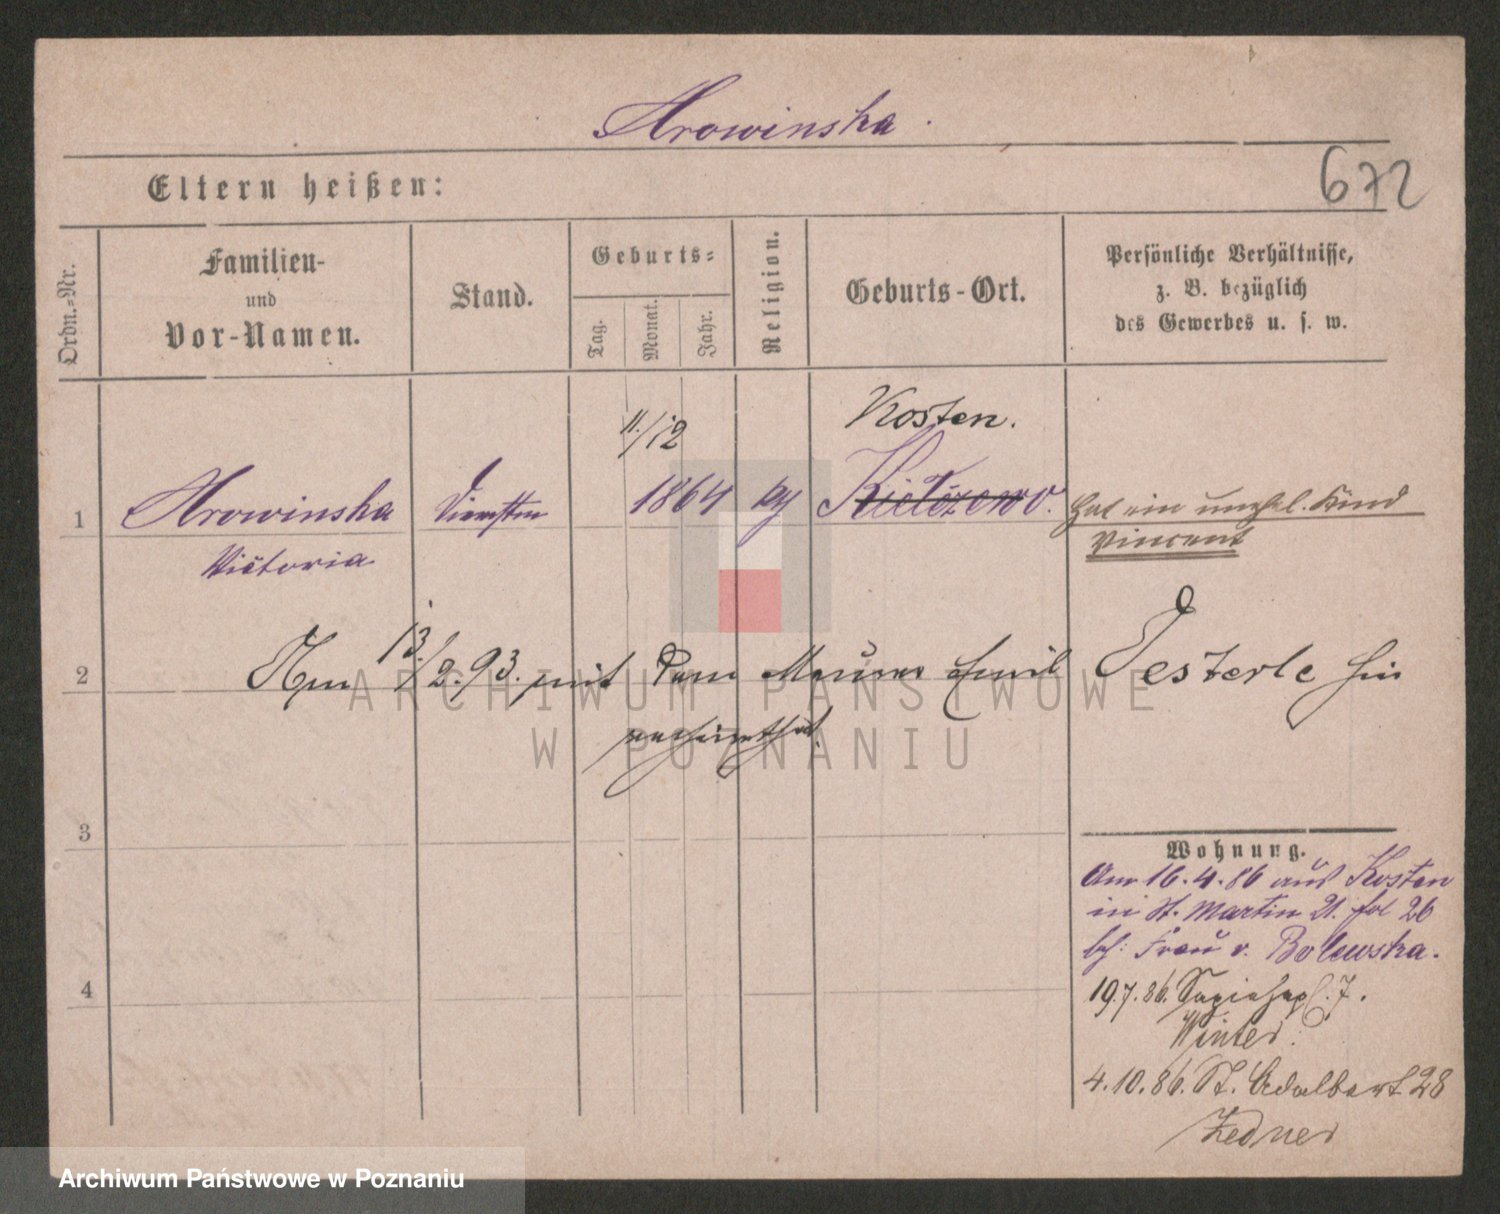 Hrowinska.
672
Eltern heißen:
Ordn.-Nr.
Familien-
und
Vor-Namen.
Stand.
Geburts-
Tag.
Monat.
Jahr.
Religion.
Geburts-Ort.
Persönliche Verhältnisse,
z. B. bezüglich
des Gewerbes u. s. w.
Kosten.
11./12
1 Hrowinska 1864 Kielczewo. hat ein unehel. Kind
Victoria
Vincent
2 Am 13/2.93. mit dem Maurer Emil Oesterle hier
verheirathet.
3
Wohnung.
Am 16.4.86 aus Kosten
in St. Martin 21. fol 26
bei: Frau v. Bolewska.
4
19.7.86. Sapiehapl. 7.
Winter.
4.10.86. St. Adalbert 28
Zedner
ARCHIWUM PAŃSTWOWE
W POZNANIU
Archiwum Państwowe w Poznaniu